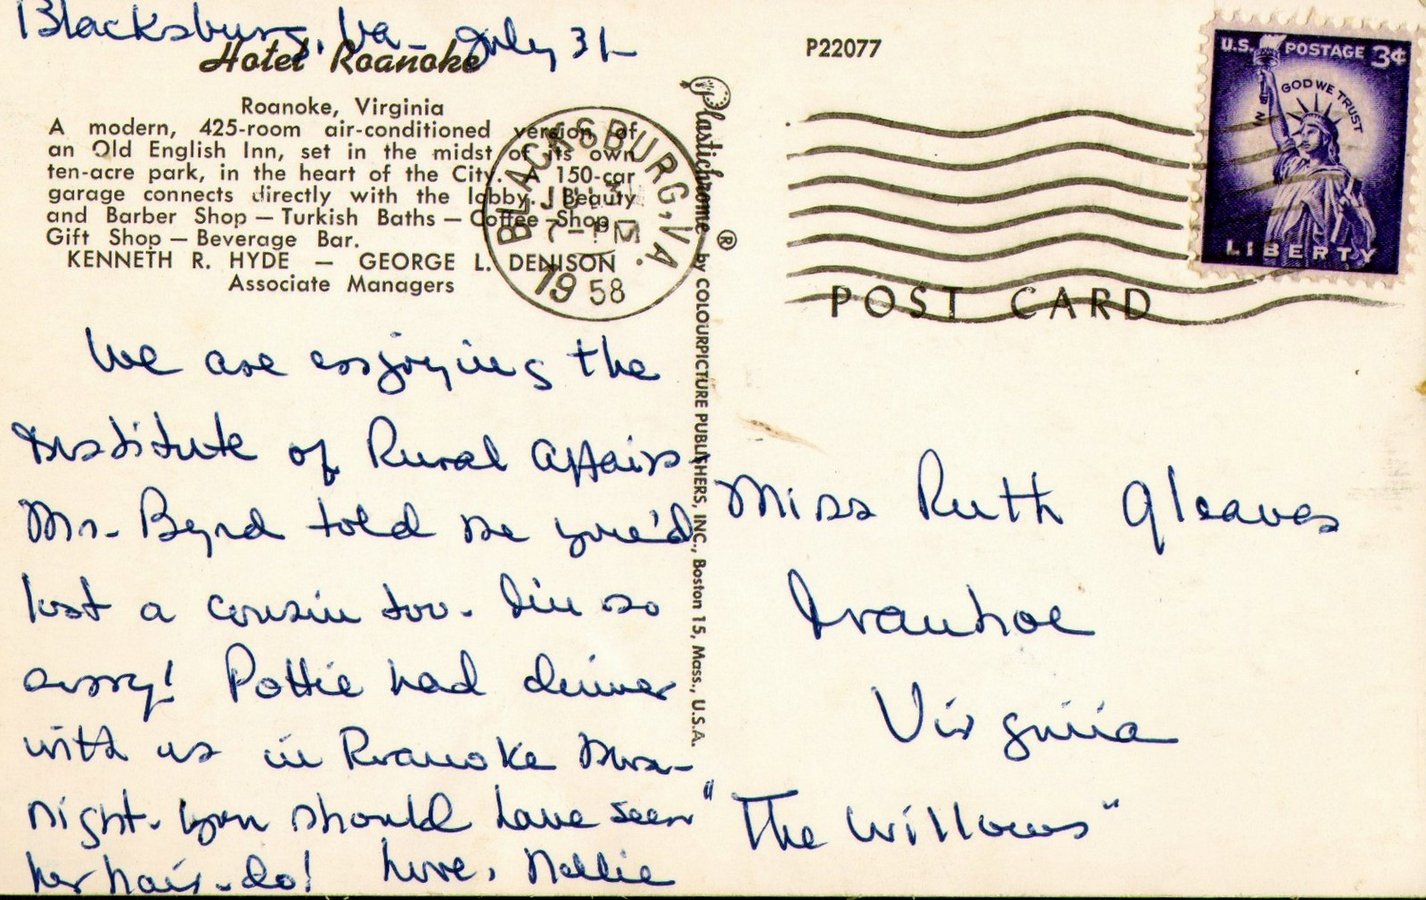 Blacksburg, Va - July 31
Hotel Roanoke
Roanoke, Virginia
A modern, 425-room air-conditioned version of
an Old English Inn, set in the midst of its own
ten-acre park, in the heart of the City. A 150-car
garage connects directly with the lobby. Beauty
and Barber Shop — Turkish Baths — Coffee Shop
Gift Shop — Beverage Bar.
KENNETH R. HYDE — GEORGE L. DENISON
Associate Managers
BLACKSBURG, VA.
7-PM
1958
We are enjoying the
Institute of Rural Affairs
Mr. Byrd told me you'd
lost a cousin too. I'm so
sorry! Pottie had dinner
with us in Roanoke Mon-
night. You should have seen
her hair-do! Love, Nellie
Plastichrome ® by COLOURPICTURE PUBLISHERS, INC., Boston 15, Mass., U.S.A.
P22077
U.S. POSTAGE 3¢
IN GOD WE TRUST
LIBERTY
POST CARD
Miss Ruth Gleaves
Ivanhoe
Virginia
"The Willows"